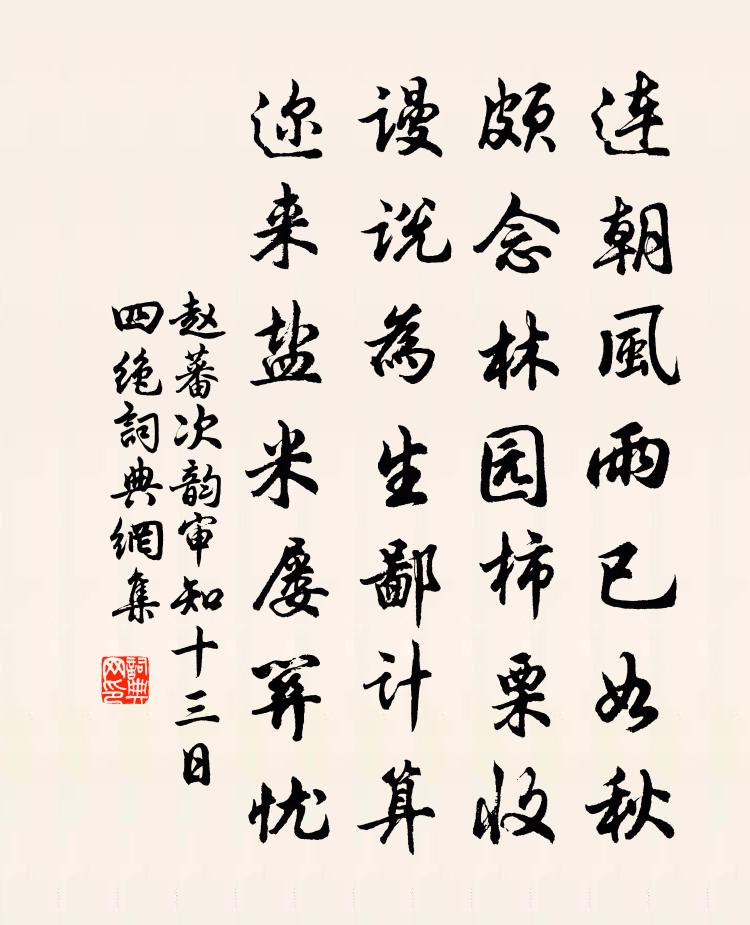 連朝風雨已如秋
颇念林园柿栗收
谩说為生鄙计算
迩来盐米屡忧
赵蕃次韵审知十三日
四绝詞典網集
詞典网印